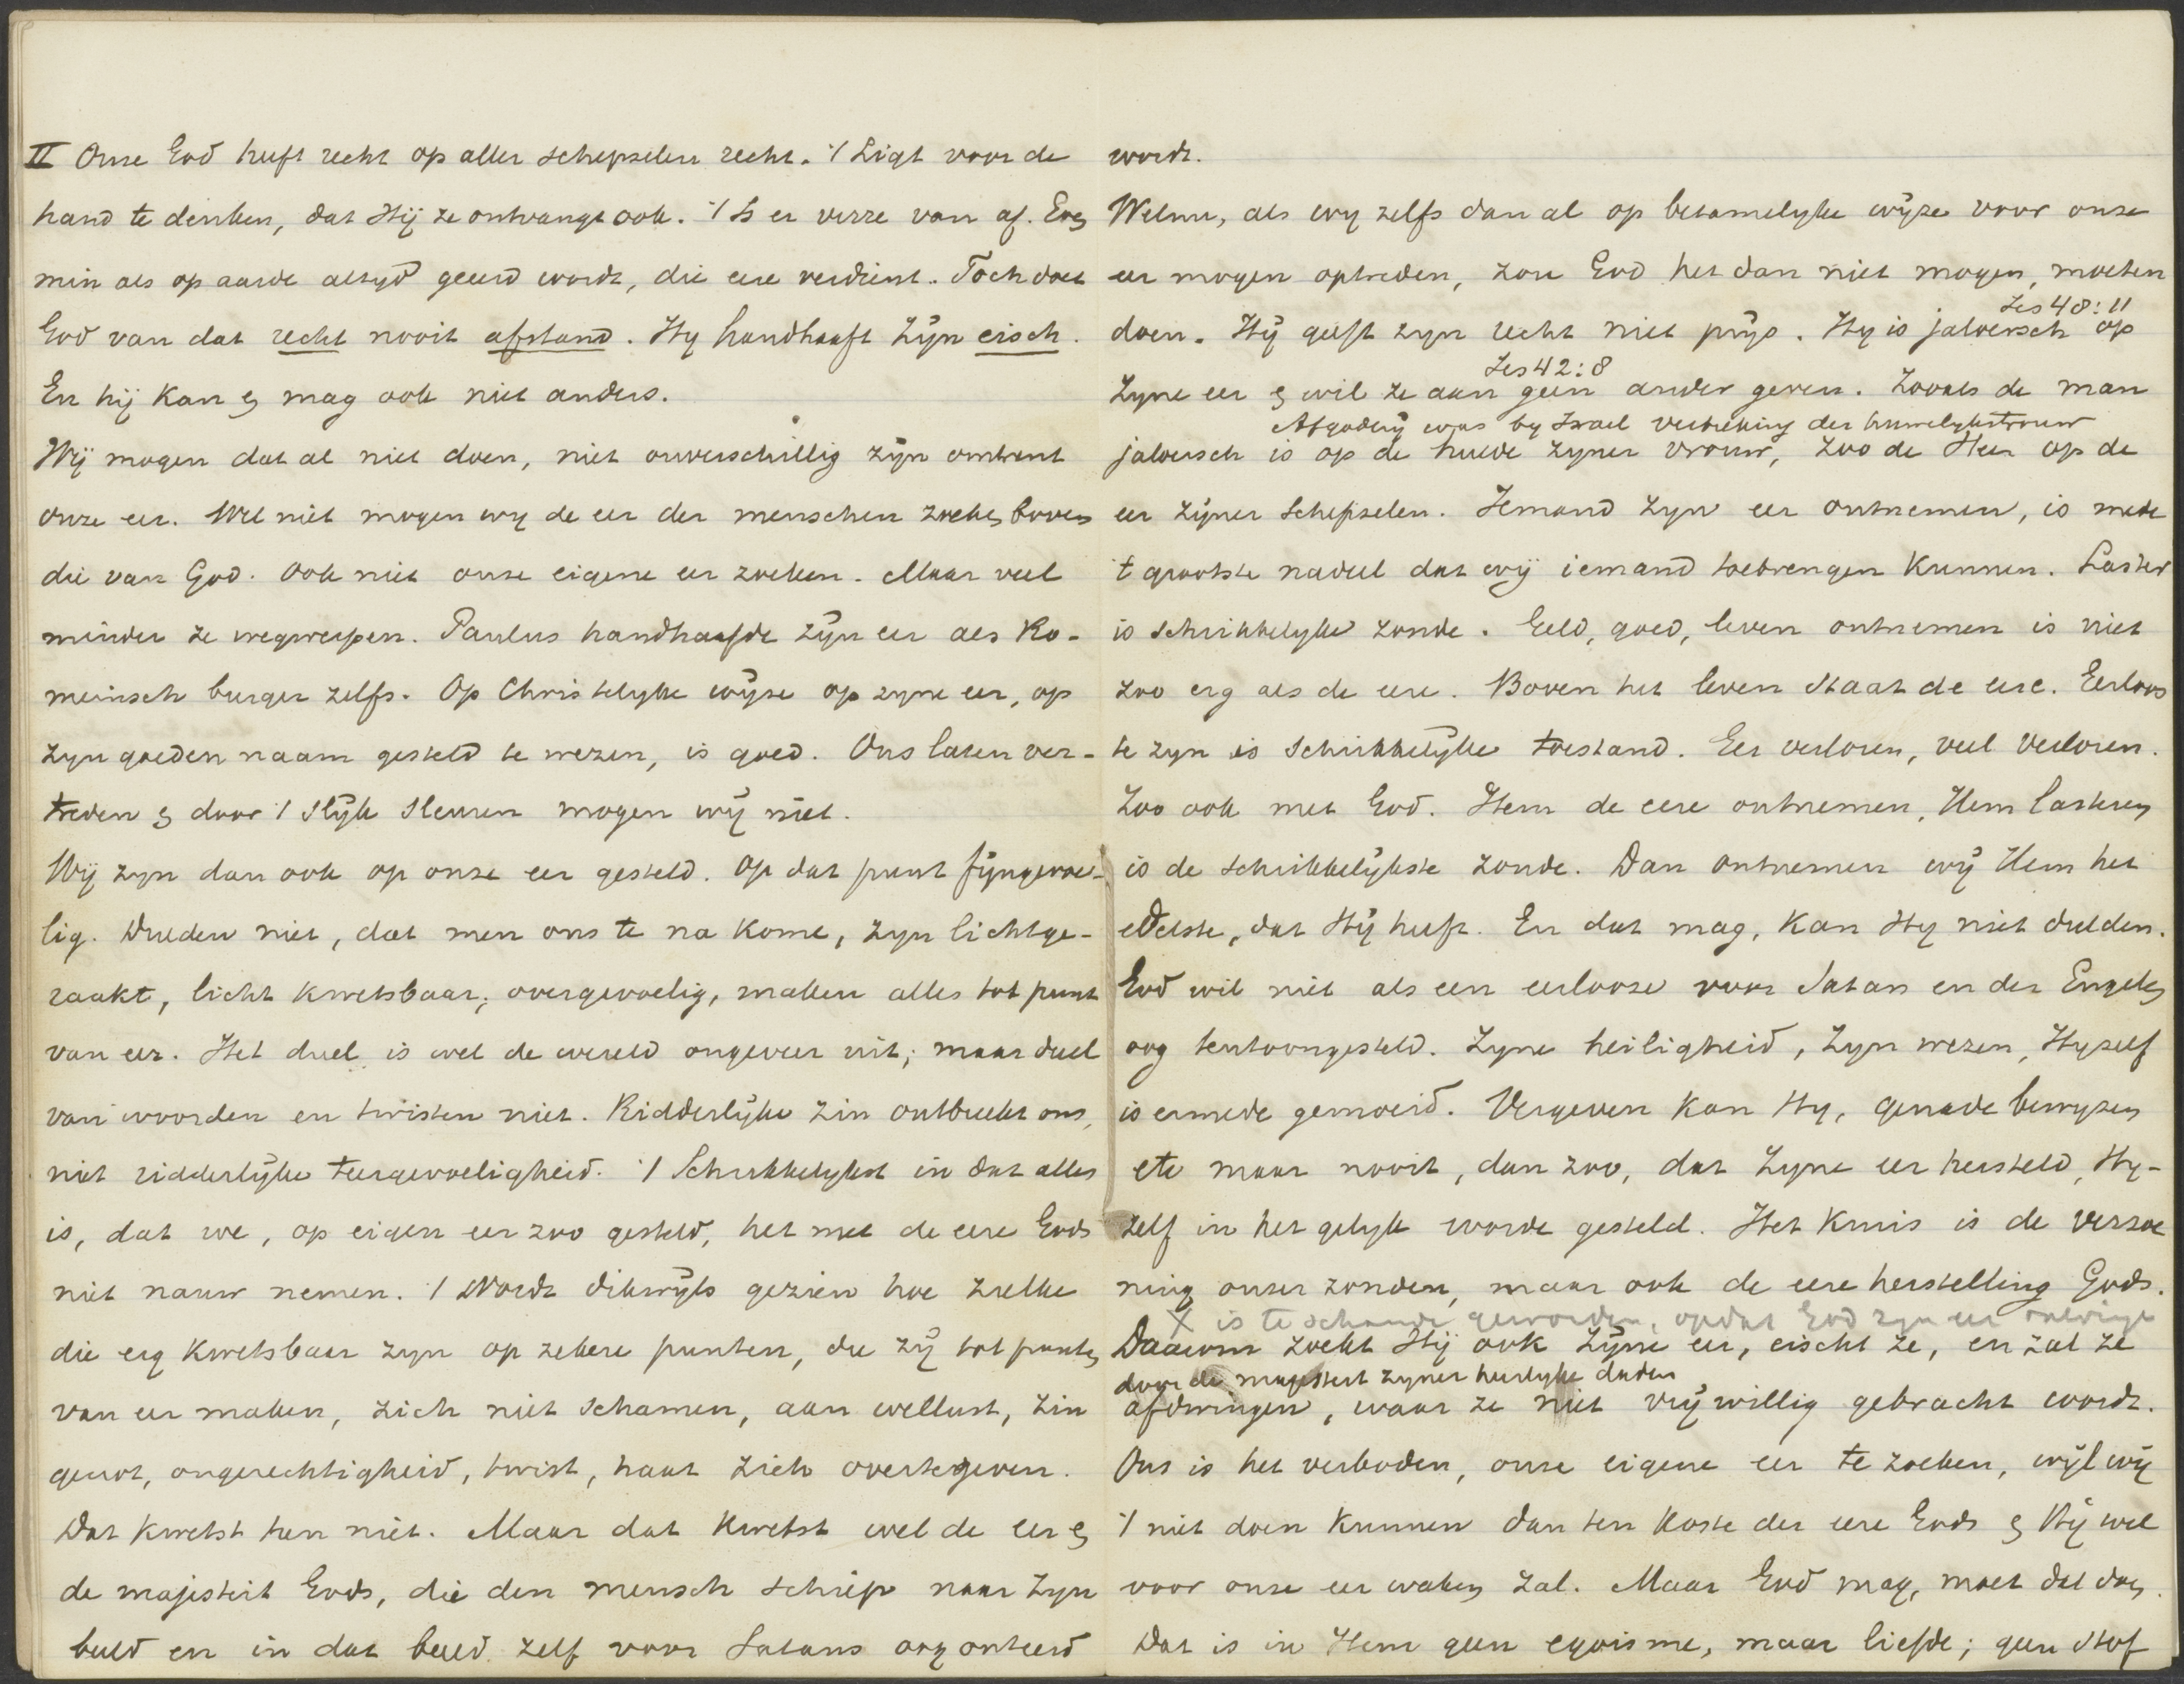 II Onze God heeft recht op aller schepselen recht. 't Ligt voor de
hand te denken, dat Hij ze ontvangt ook. 't Is er verre van af. Even
min als op aarde altyd geeerd wordt, die eere verdient. Toch doet
God van dat recht nooit afstand. Hy handhaaft Zijn eisch.
En hij kan en mag ook niet anders.
Wij mogen dat al niet doen, niet onverschillig zijn omtrent
onze eer. Wel niet mogen wy de eer der menschen zoeken boven
die van God. Ook niet onze eigene eer zoeken. Maar veel
minder ze wegwerpen. Paulus handhaafde zijn eer als Ro-
meinsch burger zelfs. Op Christelyke wijze op zyne eer, op
zyn goeden naam gesteld te wezen, is goed. Ons laten ver-
treden en door 't slijk sleuren mogen wij niet.
Wij zyn dan ook op onze eer gesteld. Op dat punt fijngevoe-
lig. Dulden niet, dat men ons te na kome, zyn lichtge-
raakt, licht kwetsbaar, overgevoelig, maken alles tot punt
van eer. Het duel is wel de wereld ongeveer uit; maar duel
van woorden en twisten niet. Ridderlijke zin ontbreekt ons,
niet ridderlijke teergevoeligheid. 't Schrikkelykst in dat alles
is, dat we, op eigen eer zoo gesteld, het met de eere Gods
niet nauw nemen. 't Wordt dikwijls gezien hoe zulke
die erg kwetsbaar zyn op zekere punten, die zij tot punten
van eer maken, zich niet schamen, aan wellust, zin
genot, ongerechtigheid, twist, haat zich overtegeven.
Dat kwetst hen niet. Maar dat kwetst wel de eer en
de majesteit Gods, die den mensch schiep naar Zyn
beeld en in dat beeld zelf voor Satans oog onteerd
wordt.
Welnu, als wy zelfs dan al op betamelyke wijze voor onze
eer mogen optreden, zou God het dan niet mogen, moeten
Jes 48:11
doen. Hij geeft zyn recht niet prijs. Hy is jaloersch op
Jes 42:8
Zyne eer en wil ze aan geen ander geven. Zooals de man
Afgoderij was by Israel verbreking der huwelykstrouw
jaloersch is op de liefde zyner vrouw, zoo de Heer op de
eer zijner schepselen. Iemand zyn eer ontnemen, is mede
't grootste nadeel dat wij iemand toebrengen kunnen. Laster
is schrikkelyke zonde. Geld, goed, leven ontnemen is niet
zoo erg als de eere. Boven het leven staat de eere. Eerloos
te zyn is schrikkelijke toestand. Eer verloren, veel verloren.
Zoo ook met God. Hem de eere ontnemen, Hem lasteren
is de schrikkelijkste zonde. Dan ontnemen wij Hem het
edelste, dat Hij heeft. En dat mag, kan Hy niet dulden.
God wil niet als een eerlooze voor Satan en der Engelen
oog tentoongesteld. Zyne heiligheid, Zyn wezen, Hyzelf
is ermede gemoeid. Vergeven kan Hy, genade bewyzen
etc maar nooit, dan zoo, dat Zyne eer hersteld, Hy-
zelf in het gelyk worde gesteld. Het kruis is de verzoe
ning onzer zonden, maar ook de eere herstelling Gods.
X is te schande geworden, opdat God zyn eer
Daarom zoekt Hij ook Zijne eer, eischt ze, en zal ze
door de majesteit zyner heerlyke daden
afdwingen, waar ze niet vrijwillig gebracht wordt.
Ons is het verboden, onze eigene eer te zoeken, wijl wij
't niet doen kunnen dan ten koste der eere Gods en Hij wel
voor onze eer waken zal. Maar God mag, moet dat doen.
Dat is in Hem geen egoisme, maar liefde; geen stof